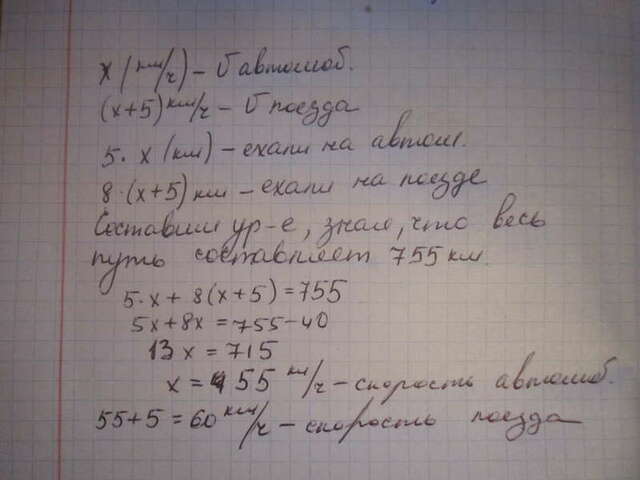 x (км/ч) – υ автомоб.
(x+5) км/ч – υ поезда
5·x (км) – ехали на автом.
8·(x+5) км – ехали на поезде
Составим ур-е, зная, что весь
путь составляет 755 км.
5·x + 8(x+5) = 755
5x + 8x = 755 – 40
13x = 715
x = 55 км/ч – скорость автомоб.
55+5 = 60 км/ч – скорость поезда